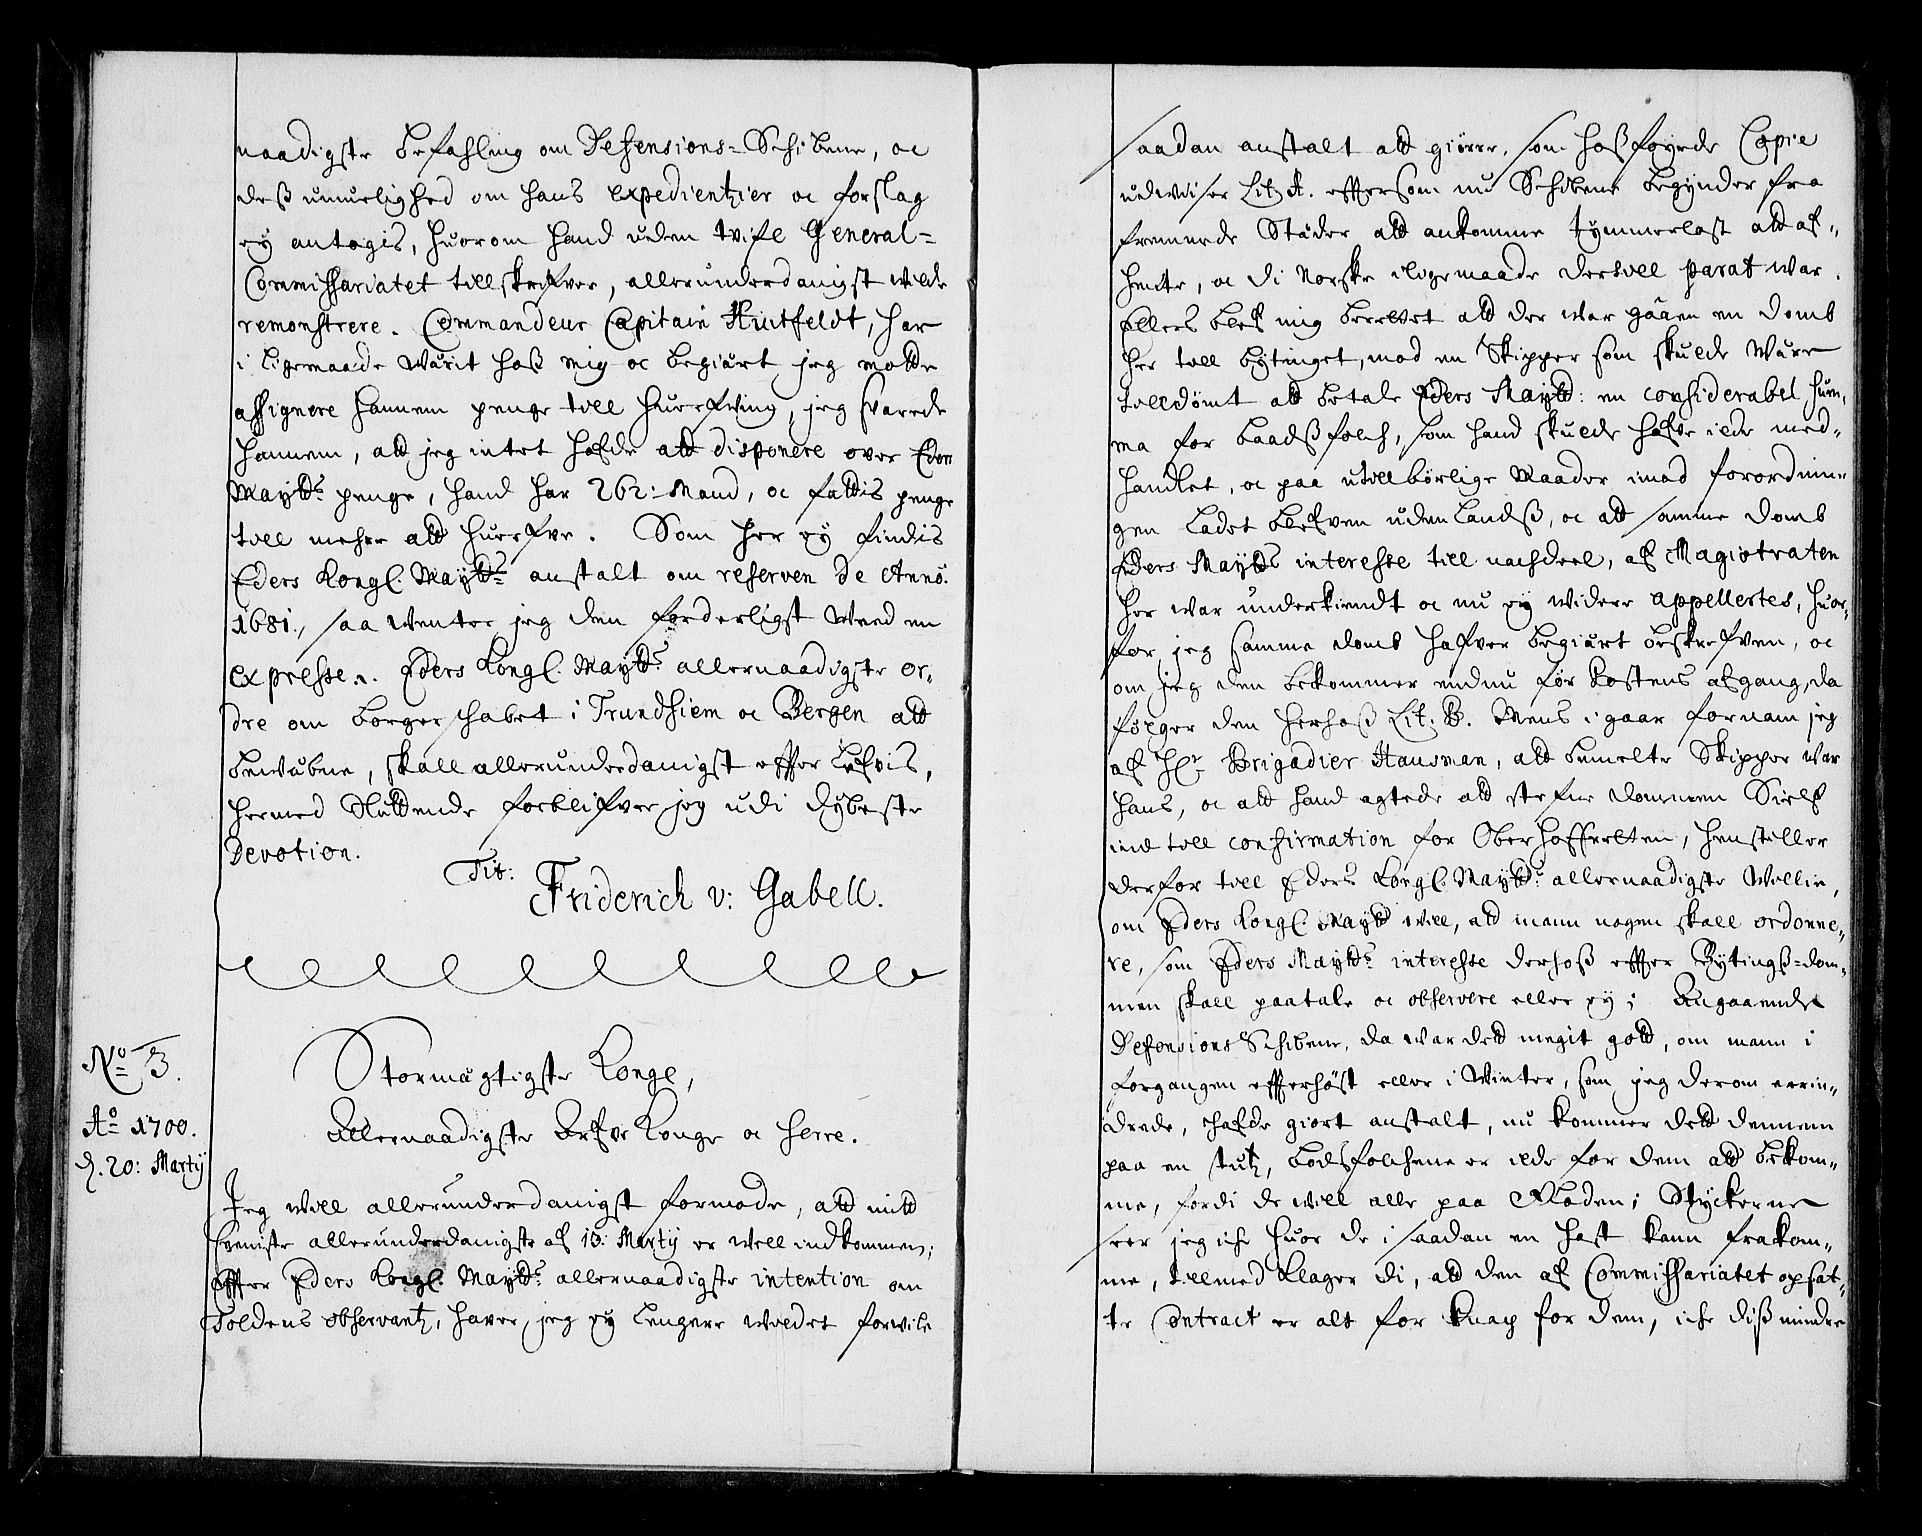 naadigste befahling om Defensions-Schibene, oc
deß umuelighed om hans expedientzier oc forslag
ey antagis, huorom hand uden tvifl General-
Commissariatet tillskrifver, allerunderdanigst wilde
remonstrere. Commandeur Capitain Huitfeldt, har
i ligemaade wärit hoß mig oc begiärt jeg motte
assignere hannem penge till huerfving, jeg svarede
hannem, att jeg intet hafde att disponere over Eders
Maytts penge, hand har 262: Mand, oc fattis penge
till meher att huerfve. Som her ey findis
Eders Kongl. Maytts anstalt om reserven de Anno.
1681, saa wenter jeg den forderligst med en
expresse. Eders Kongl. Maytts allernaadigste or-
dre om borgerschabet i Trundhiem oc Bergen att
bewäbne, skall allerunderdanigst effterlefvis,
hermed sluttende forblifver jeg udi dybeste
Devotion.
Tit:
Friderich v: Gabell.
No 3.
Ao 1700.
d. 20: Martij
Stormägtigste Konge,
Allernaadigste Arfve Konge oc Herre.
Jeg will allerunderdanigst formode, att mitt
seeniste allerunderdanigste af 13: Martij er well indkommen;
Effter Eders Kongl. Maytts allernaadigste intention om
Toldens observantz, haver jeg ey lengere willdet forwile
saadan anstalt att giøre, som hoßføyede Copie
udwiser Lit. A. effersom nu Schibene begynder fra
fremmede Städer att ankomme tymmerlast att af-
hente, oc di Norske iligemaade dertill parat war.
Ellers blef mig berettet att der war gaaen en domb
her till bytinget, mod en Skipper som skulde wäre
tilldømt att betale Eders Maytt: en considerabel sum-
ma for baadßfolch, som hand skulde hafve ilde med-
handlet, oc paa utillbørlige Maader imod forordnin-
gen ladet blifven udenlandß, oc att samme domb
Eders Maytts interesse till nachdeel, af Magistraten
her war underkiendt oc nu ey widere appellertes, huor-
for jeg samme domb hafver begiärt beskrefven, oc
om jeg den bekommer endnu før Postens afgang, da
følger den herhoß Lit. B. Mens i gaar fornam jeg
af Hr Brigadier Hausman, att bemelte Skipper war
hans, oc att hand agtede att stefne dommen Sielf
ind till confirmation for Oberhoffretten, henstiller
derfor till Eders Kongl. Maytts allernaadigste Willie,
om Eders Kongl. Maytt will, att mann nogen skall ordonne-
re, som Eders Maytts interesse derhoß effter Bytingß-dom-
men skall paatale oc observere eller ey; Angaaende
Defensions Schibene, da war dett megit gott, om mann i
forgangen effterhøst eller i Winter, som jeg derom errin-
drede, hafde giort anstalt, nu kommer dett dennem
paa en stutz, bodsfolchene er ilde for dem att bekom-
me, fordi de will alle paa Floden; Styckerne
seer jeg iche huor de i saadan en hast kann frakom-
me, tillmed klager di, att den af Commissariatet opsat-
te Contract er alt for knap for dem, iche diß mindre